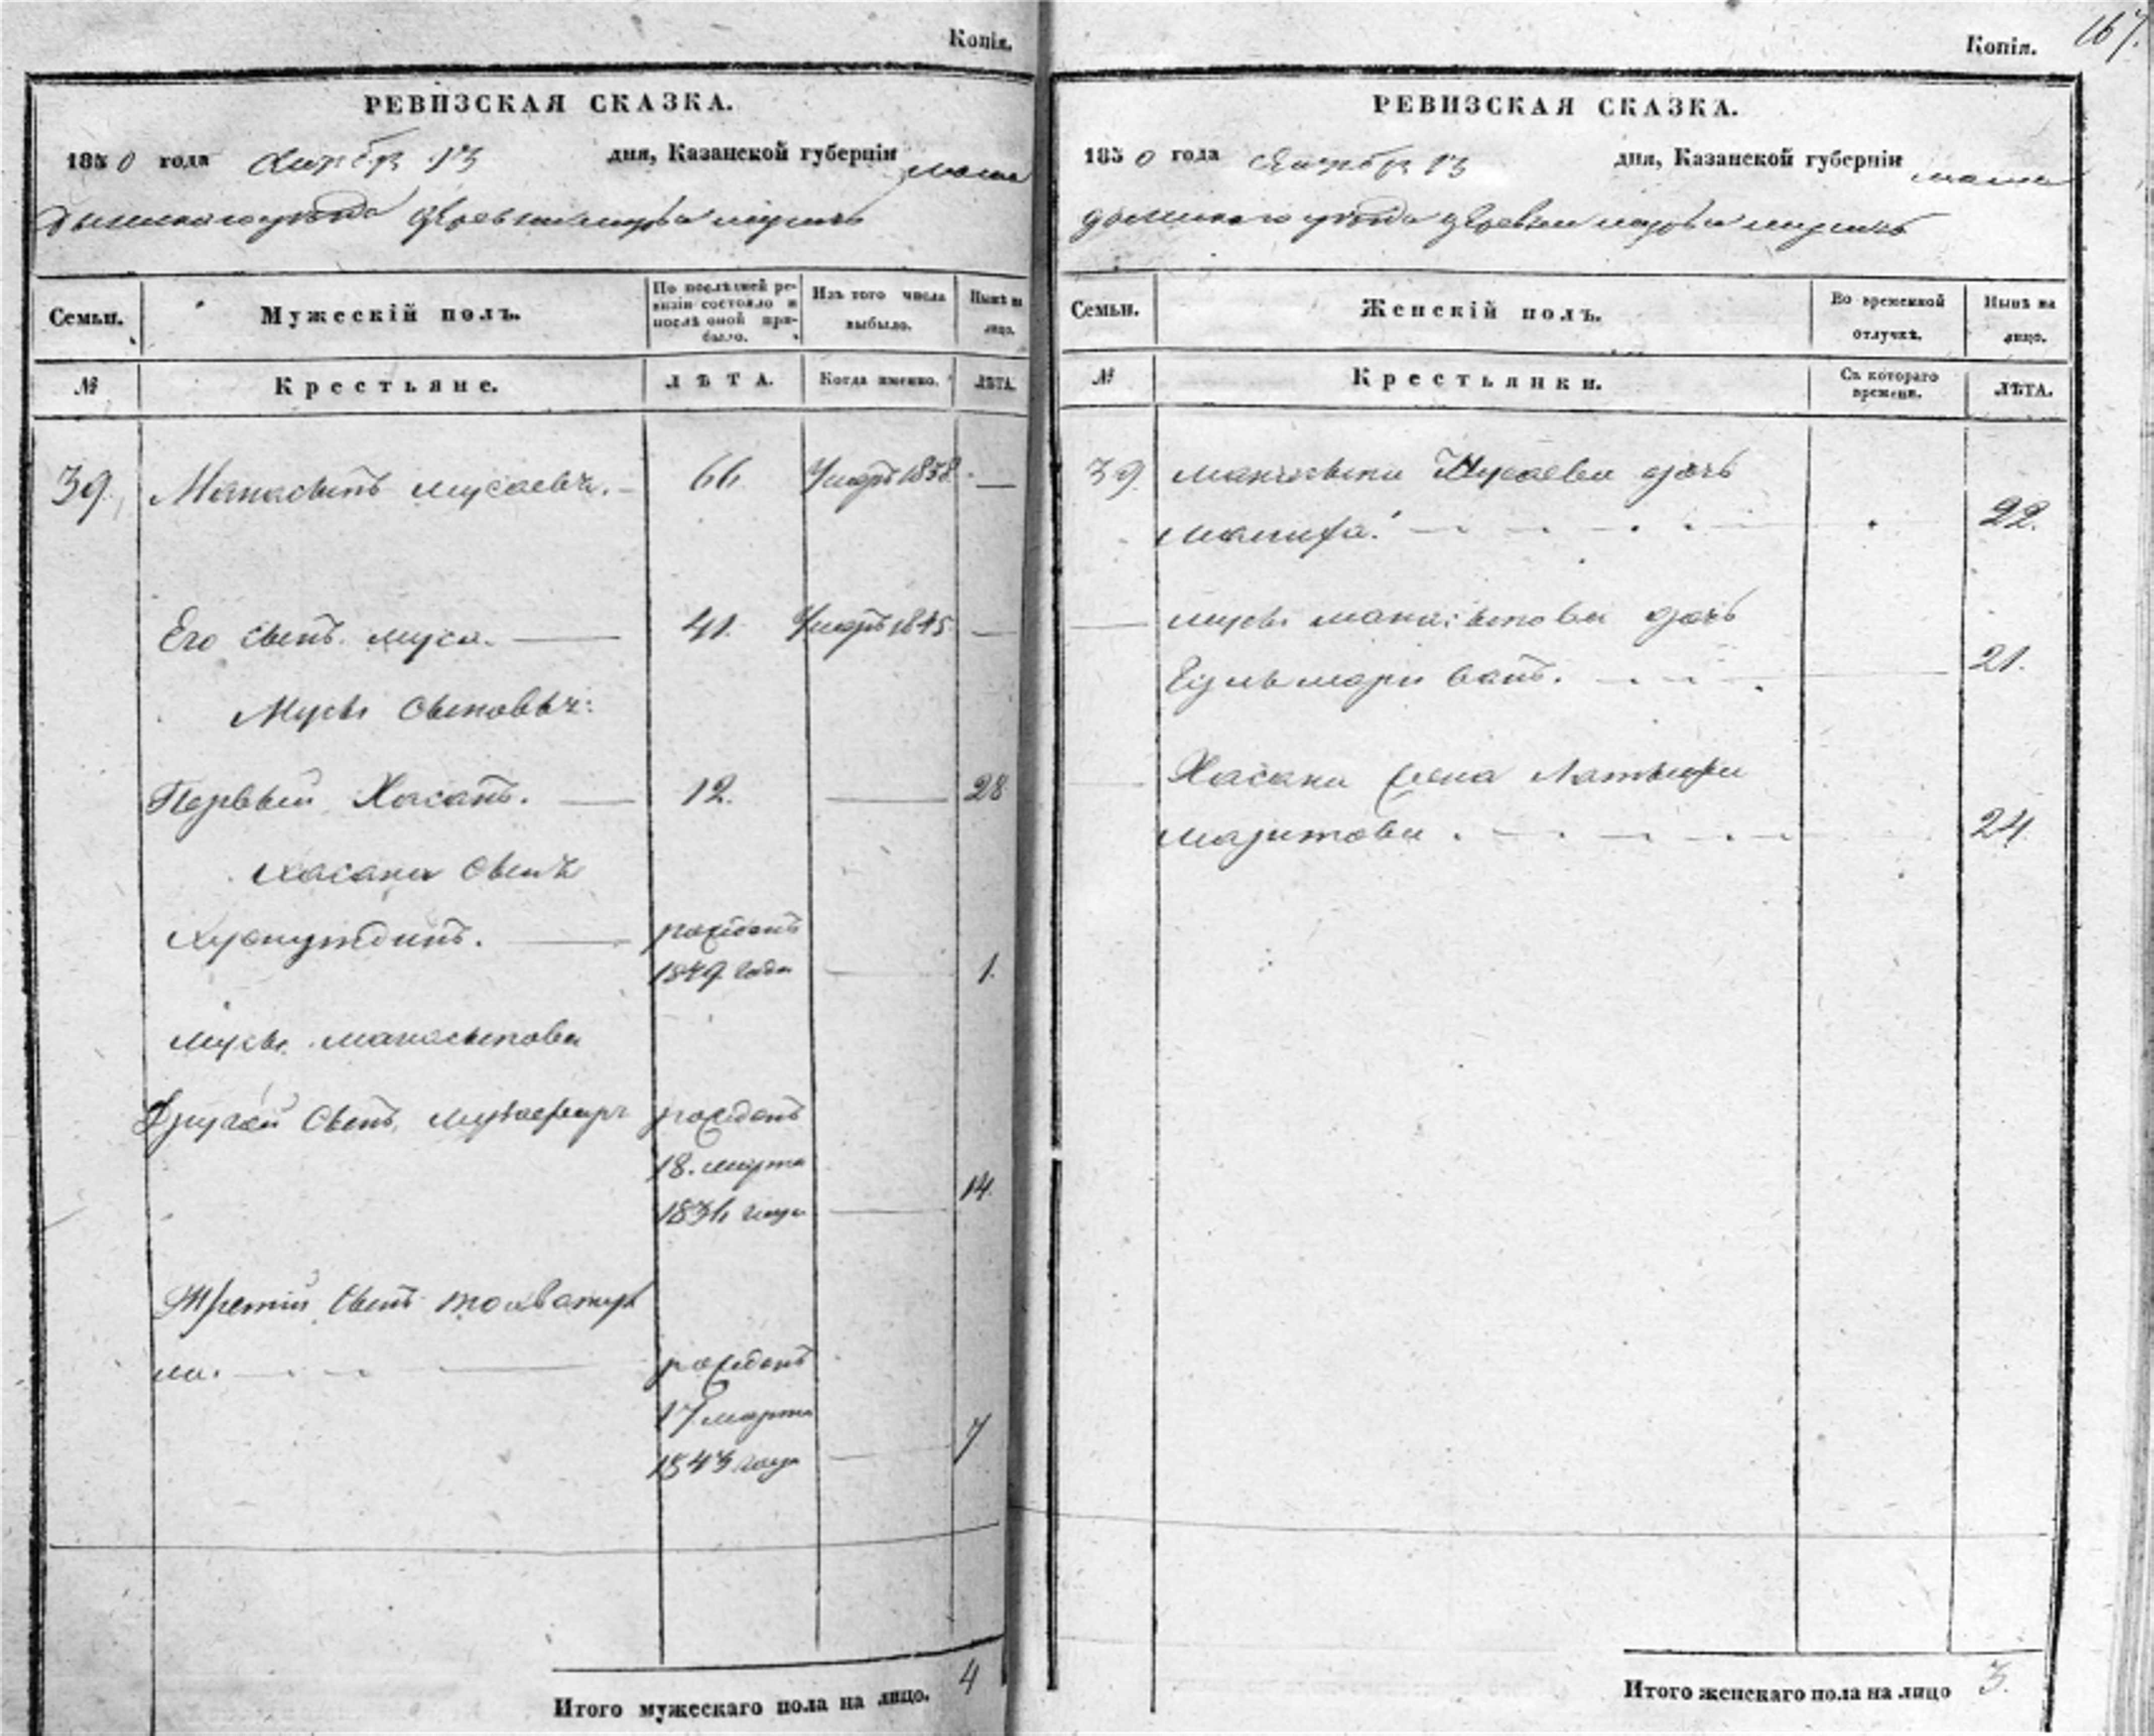 Копія.
РЕВИЗСКАЯ СКАЗКА.
1850 года Октбр 13 дня, Казанской губерніи мама
дышскаго уѣзда деревни
Семьи.
Мужескій полъ.
По послѣдней ревизіи состояло и послѣ оной прибыло.
Изъ того числа выбыло.
Нынѣ на лицо.
№
Крестьяне.
ЛѢТА.
Когда именно.
ЛѢТА.
39. Манасыпъ Мусаевъ. 66 Умеръ 1838 —
Его сынъ Муса. — 41. Умеръ 1845 —
Мусы сыновья:
Первый Хасанъ. — 12. — 28
Хасана сынъ
— рожденъ
1849 года — 1.
Мусы Манасыпова
Другой сынъ рожденъ
18. марта
1836 года — 14.
Третій сынъ
ла. рожденъ
17 марта
1843 года — 7
Итого мужескаго пола на лицо. 4
167.
Копія.
РЕВИЗСКАЯ СКАЗКА.
1850 года Октбр 13 дня, Казанской губерніи мама
дышскаго уѣзда деревни
Семьи.
Женскій полъ.
Во временной отлучкѣ.
Нынѣ на лицо.
№
Крестьянки.
Съ котораго времени.
ЛѢТА.
39. Манасыпа Мусаева дочь
22.
— Мусы Манасыпова дочь
21.
— Хасана жена Латыфа
24.
Итого женскаго пола на лицо 3.